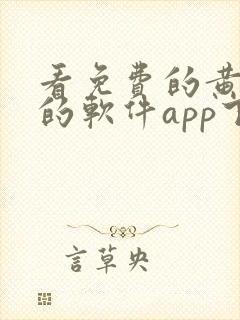 看免費的黃
的軟件app下
言草央